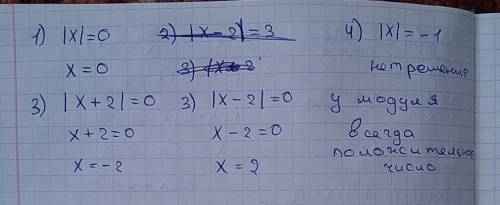 1) |x|=0
x=0
2) |x-2|=3
3) |x-2
4) |x|=-1
нет решение
3) |x+2|=0
x+2=0
x=-2
3) |x-2|=0
x-2=0
x=2
у модуля
всегда
положительное
число